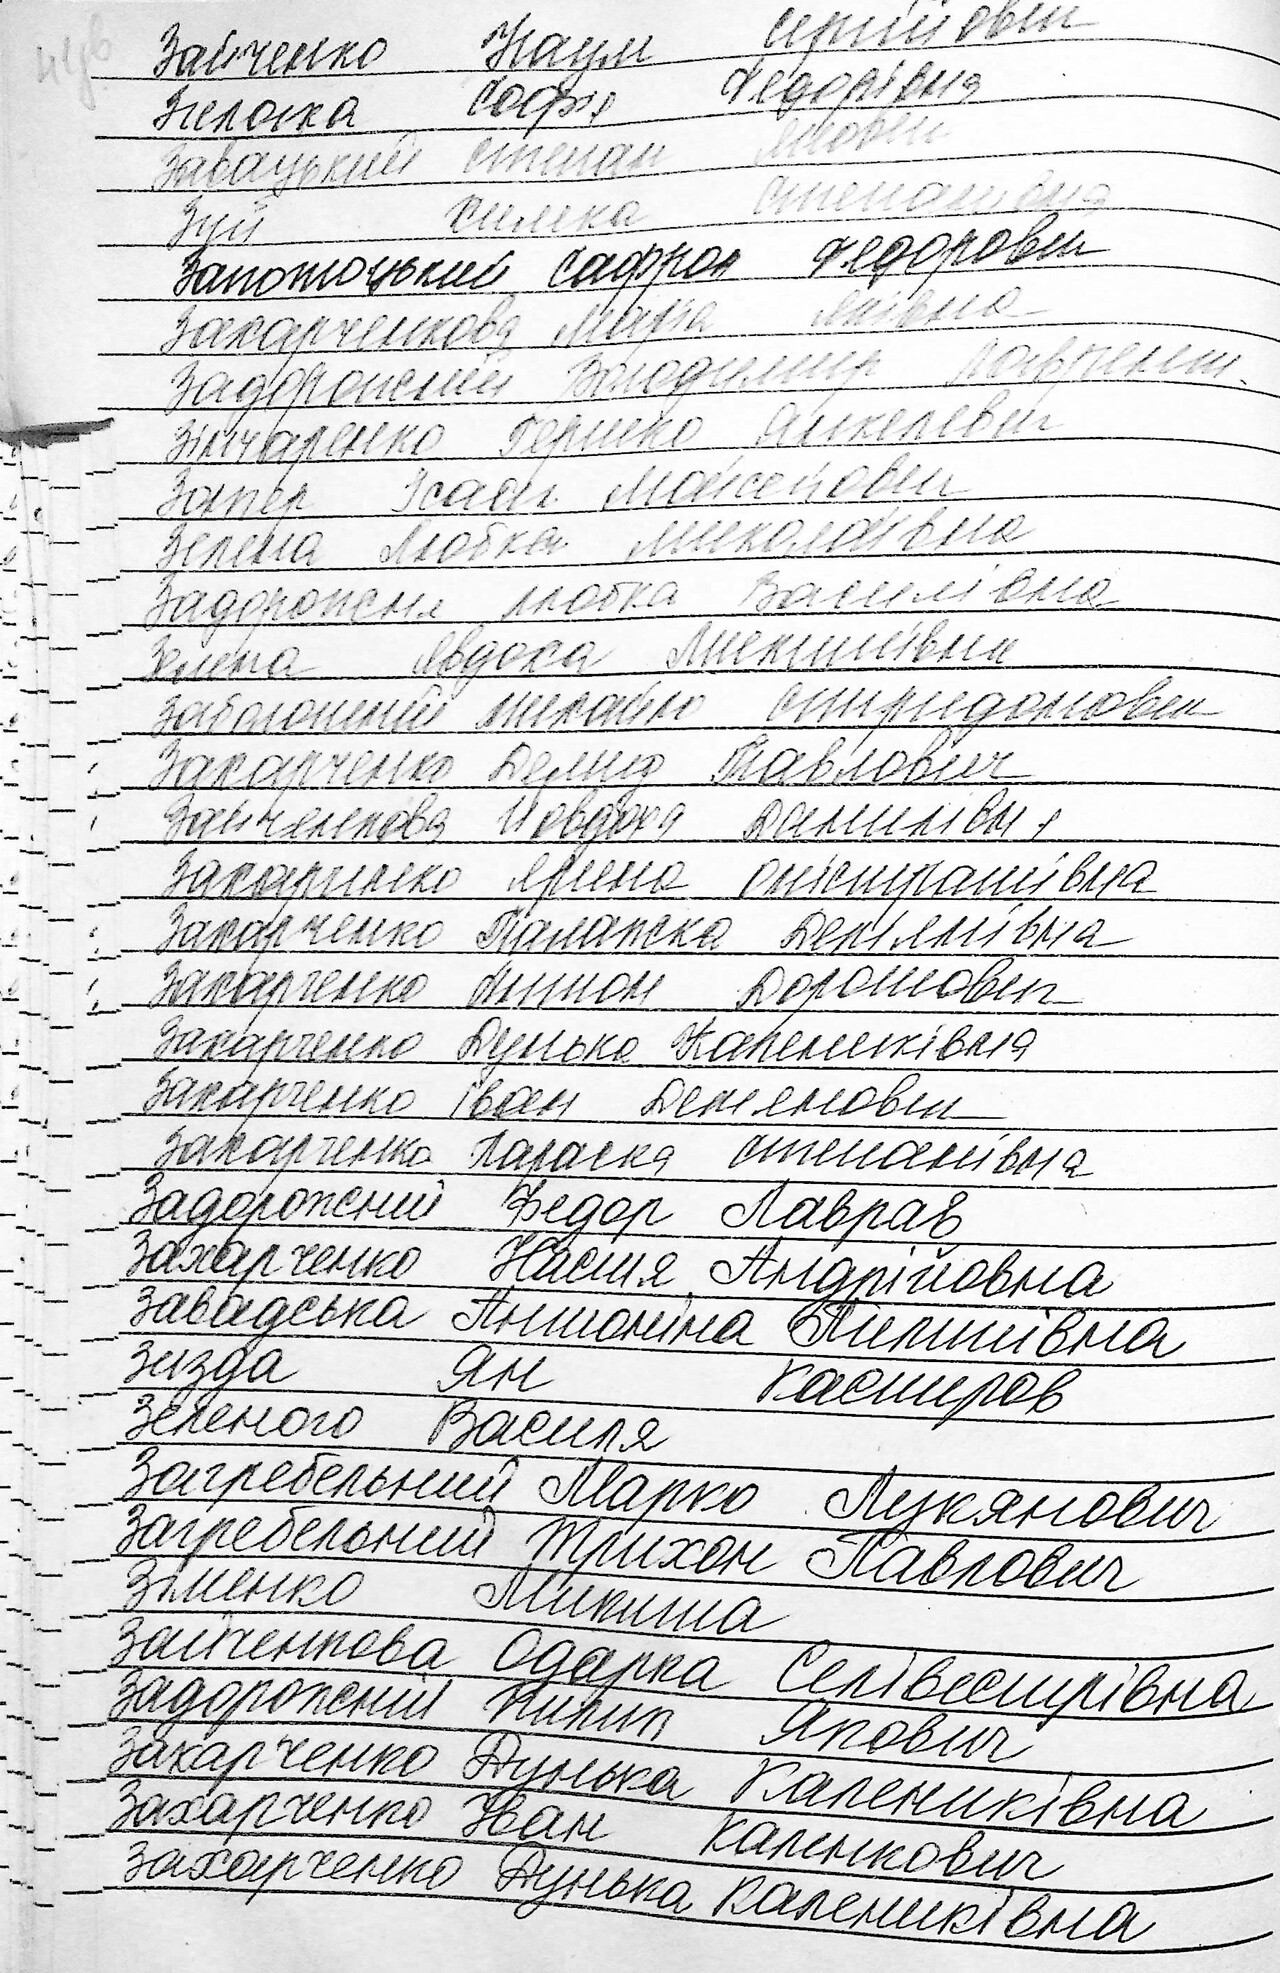 Зайченко Наум Сергійович
Зелоска Софія Федорівна
Завацький Степан
Зуй Степанівна
Запотоцький Сафрон Федорович
Захарченкова Марія Яківна
Задорожний Володимир Лаврентв.
Зінчаренко Гершко Янкелевич
Запер Ісаак Мойсейович
Зелена Любка Миколаївна
Задорожня Любка Василівна
Зелена Явдоха Микитівна
Заболотний Михайло Спиридонович
Захарченко Демид Павлович
Зайченкова Йовдоха Данилівна
Захарченко Ярина Оністратівна
Захарченко Палажка Демянівна
Захарченко Антон Дорошович
Захарченко Дунька Калениківна
Захарченко Іван Демянович
Захарченко Параска Степанівна
Задорожний Федор Лаврів
Захарченко Настя Андрійовна
Завадська Антоніна Пилипівна
Зизда Ян Касперов
Зеленого Василя
Загребельний Марко Лукянович
Загребельний Трихон Павлович
Зіменко Микита
Зайченкова Одарка Селівестрівна
Задорожний Килип Якович
Захарченко Дунька Калениківна
Захарченко Іван Каленкович
Захарченко Дунька Калениківна